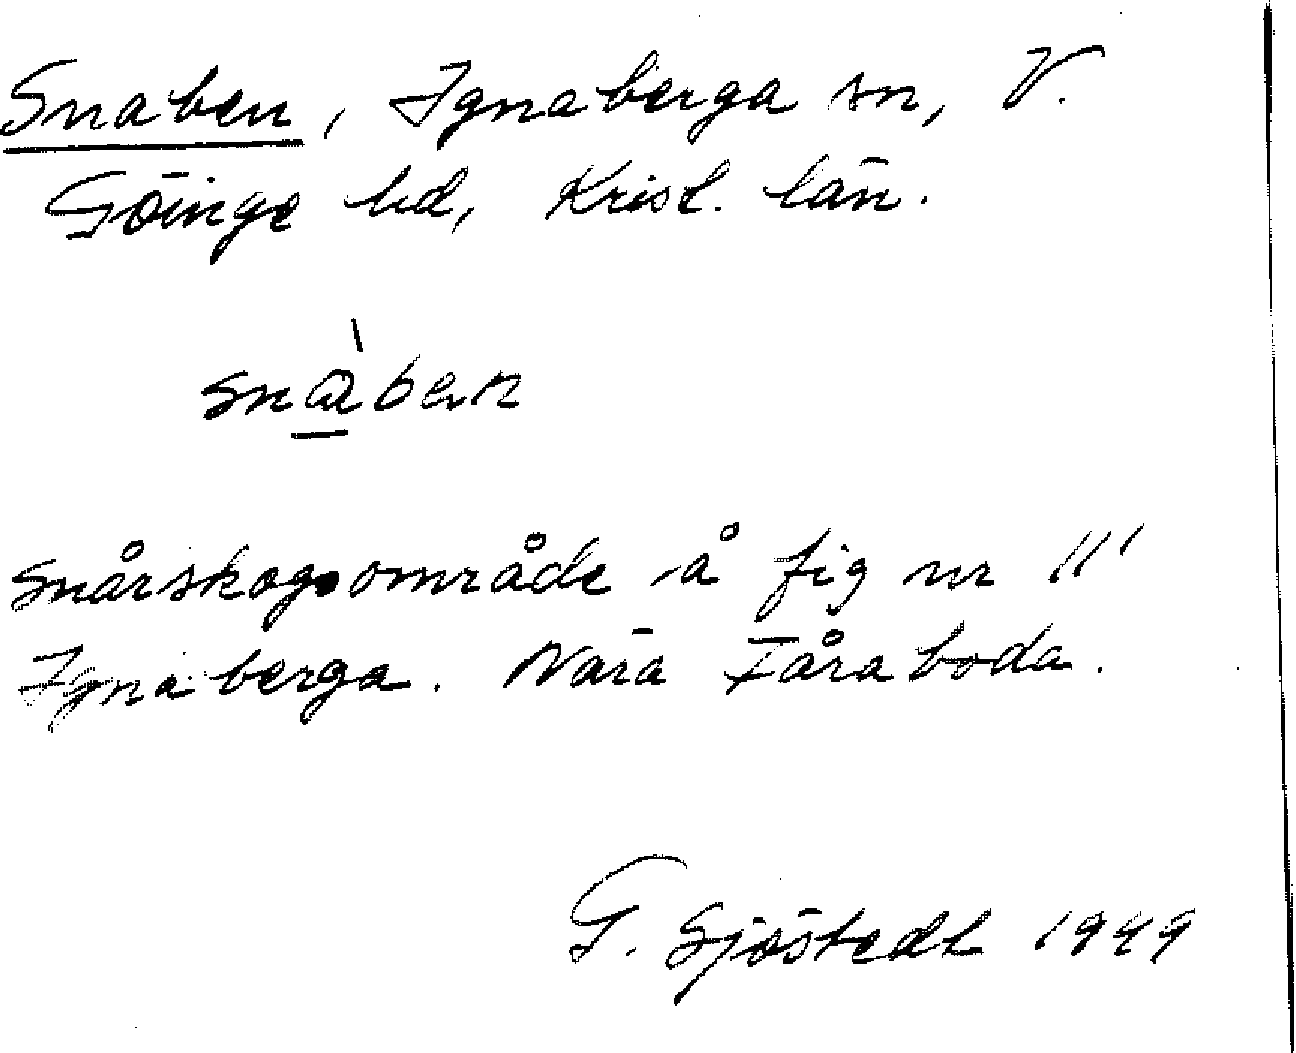 Snaben, Ignaberga sn, V.
Göinge hd, Krist. län.
snàben
Snårskogsområde å fig nr 11'
Ignaberga. Nära Fåraboda.
G. Sjöstedt 1949